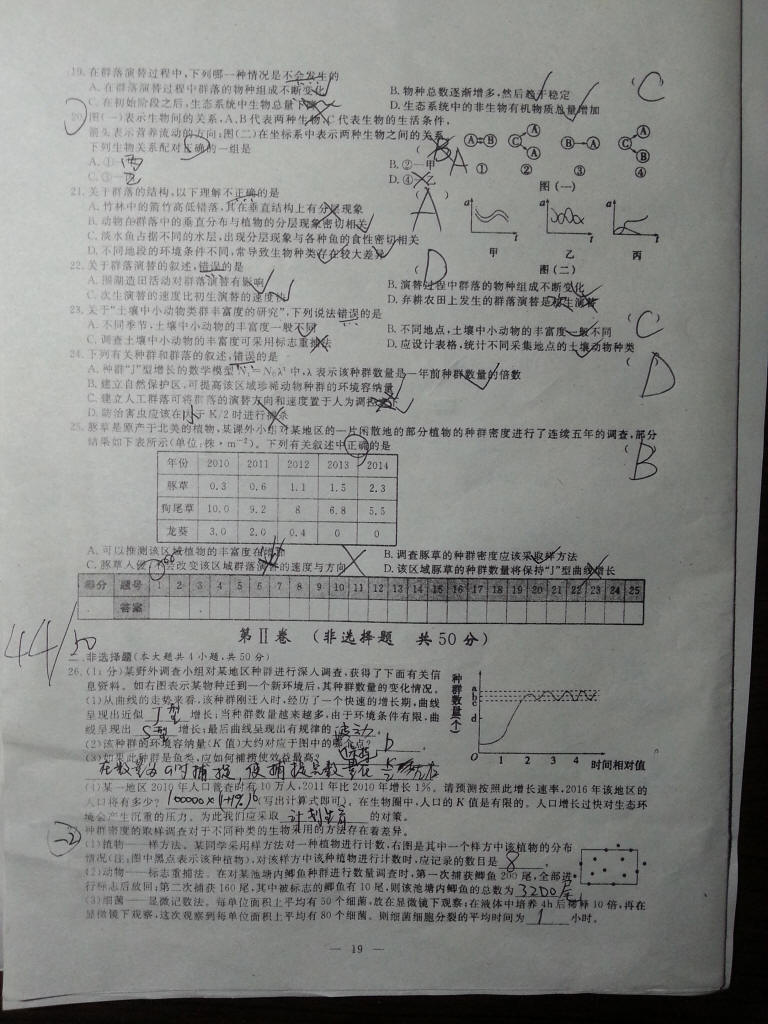 19.在群落演替过程中,下列哪一种情况是不会发生的
A.在群落演替过程中群落的物种组成不断变化 B.物种总数逐渐增多,然后趋于稳定
C.在初始阶段之后,生态系统中生物总量下降 D.生态系统中的非生物有机物质总量增加
C
20.图(一)表示生物间的关系,A、B代表两种生物,C代表生物的生活条件,
箭头表示营养流动的方向;图(二)在坐标系中表示两种生物之间的关系。
下列生物关系配对正确的一组是
A.①—丙 B.②—甲
C.③—乙 D.④—乙
① ② ③ ④
图(一)
21.关于群落的结构,以下理解不正确的是
A
A.竹林中的箭竹高低错落,其在垂直结构上有分层现象
B.动物在群落中的垂直分布与植物的分层现象密切相关
C.淡水鱼占据不同的水层,出现分层现象与各种鱼的食性密切相关
D.不同地段的环境条件不同,常导致生物种类存在较大差异
甲 乙 丙
图(二)
22.关于群落演替的叙述,错误的是
D
A.围湖造田活动对群落演替有影响 B.演替过程中群落的物种组成不断变化
C.次生演替的速度比初生演替的速度快 D.弃耕农田上发生的群落演替是初生演替
23.关于“土壤中小动物类群丰富度的研究”,下列说法错误的是
C
A.不同季节,土壤中小动物的丰富度一般不同 B.不同地点,土壤中小动物的丰富度一般不同
C.调查土壤中小动物的丰富度可采用标志重捕法 D.应设计表格,统计不同采集地点的土壤动物种类
24.下列有关种群和群落的叙述,错误的是
D
A.种群“J”型增长的数学模型Nt=N0λt中,λ表示该种群数量是一年前种群数量的倍数
B.建立自然保护区,可提高该区域珍稀动物种群的环境容纳量
C.建立人工群落可将群落的演替方向和速度置于人为调控之下
D.防治害虫应在大于K/2时进行捕杀
25.豚草是原产于北美的植物,某课外小组对某地区的一片闲散地的部分植物的种群密度进行了连续五年的调查,部分
结果如下表所示(单位:株·m-2)。下列有关叙述中正确的是
B
年份 2010 2011 2012 2013 2014
豚草 0.3 0.6 1.1 1.5 2.3
狗尾草 10.0 9.2 8 6.8 5.5
龙葵 3.0 2.0 0.4 0 0
A.可以推测该区域植物的丰富度在增加 B.调查豚草的种群密度应该采取样方法
C.豚草入侵不会改变该区域群落演替的速度与方向 D.该区域豚草的种群数量将保持“J”型曲线增长
部分 题号 1 2 3 4 5 6 7 8 9 10 11 12 13 14 15 16 17 18 19 20 21 22 23 24 25
答案
44/50
第Ⅱ卷 (非选择题 共50分)
二、非选择题(本大题共4小题,共50分)
26.(1 分)某野外调查小组对某地区种群进行深入调查,获得了下面有关信
息资料。如右图表示某物种迁到一个新环境后,其种群数量的变化情况。
(1)从曲线的走势来看,该种群刚迁入时,经历了一个快速的增长期,曲线
呈现出近似 J型 增长;当种群数量越来越多,由于环境条件有限,曲
线呈现出 S型 增长;最后曲线呈现出有规律的 波动。
(2)该种群的环境容纳量(K值)大约对应于图中的哪个点? b
(3)如果此种群是鱼类,应如何捕捞使效益最高?
种群数量(个) a b c d O 1 2 3 4 时间相对值
(4)某一地区2010年人口普查时有10万人,2011年比2010年增长1%。请预测按照此增长速率,2016年该地区的
人口将有多少? 100000×(1+1%)6 (写出计算式即可)。在生物圈中,人口的K值是有限的。人口增长过快对生态环
境会产生沉重的压力。为此我们应采取 计划生育 的对策。
种群密度的取样调查对于不同种类的生物采用的方法存在着差异。
(1)植物——样方法。某同学采用样方法对一种植物进行计数,右图是其中一个样方中该植物的分布
情况(注:图中黑点表示该种植物),对该样方中该种植物进行计数时,应记录的数目是 8 。
(2)动物——标志重捕法。在对某池塘内鲫鱼种群进行数量调查时,第一次捕获鲫鱼200尾,全部进
行标志后放回;第二次捕获160尾,其中被标志的鲫鱼有10尾,则该池塘内鲫鱼的总数为 3200尾
(3)细菌——显微记数法。每单位面积上平均有50个细菌,放在显微镜下观察;在液体中培养4h后稀释10倍,再在
显微镜下观察,这次观察到每单位面积上平均有80个细菌。则细菌细胞分裂的平均时间为 1 小时。
— 19 —